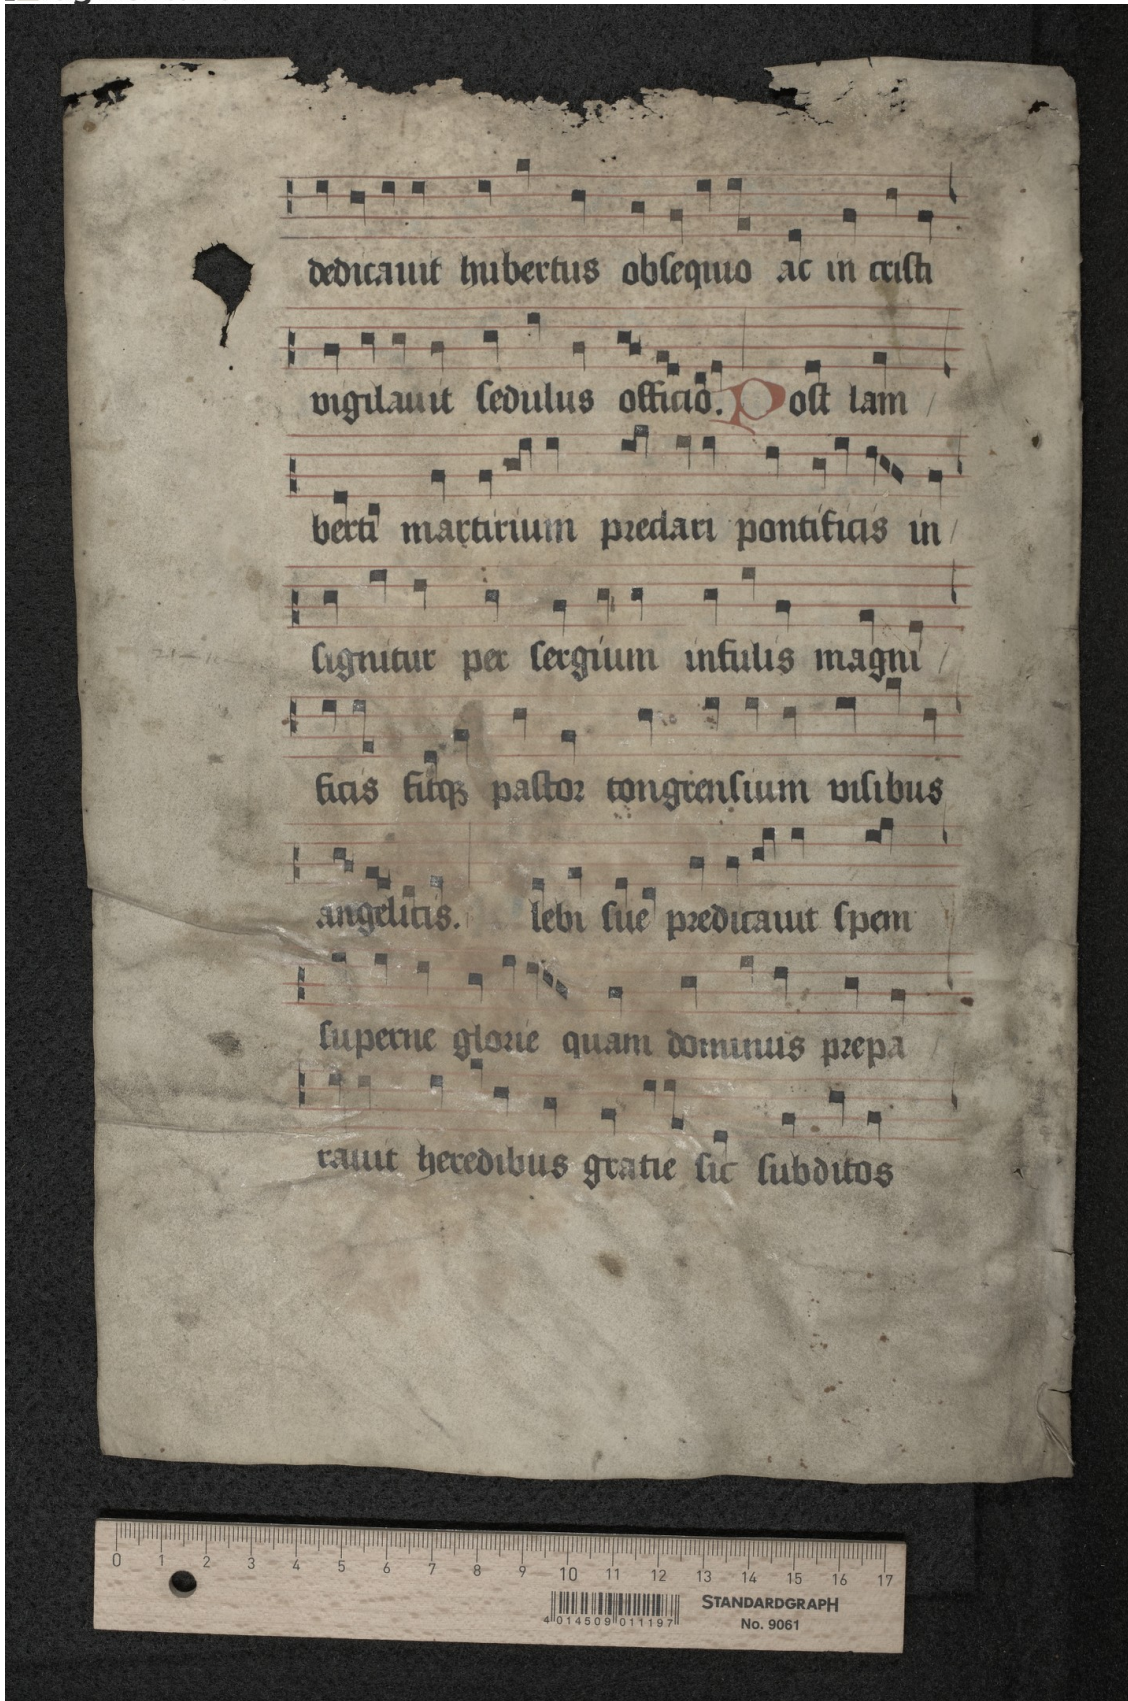 dedicauit hubertus obsequio ac in cristi
vigilauit sedulus officio. Post lam
berti martirium preclari pontificis in
signitur per sergium infulis magni
ficis fitq3 pastor tongrensium visibus
angelicis. lebi sue predicauit spem
superne glorie quam dominus prepa
rauit heredibus gratie sic subditos
0 1 2 3 4 5 6 7 8 9 10 11 12 13 14 15 16 17
4 014509 011197
STANDARDGRAPH
No. 9061